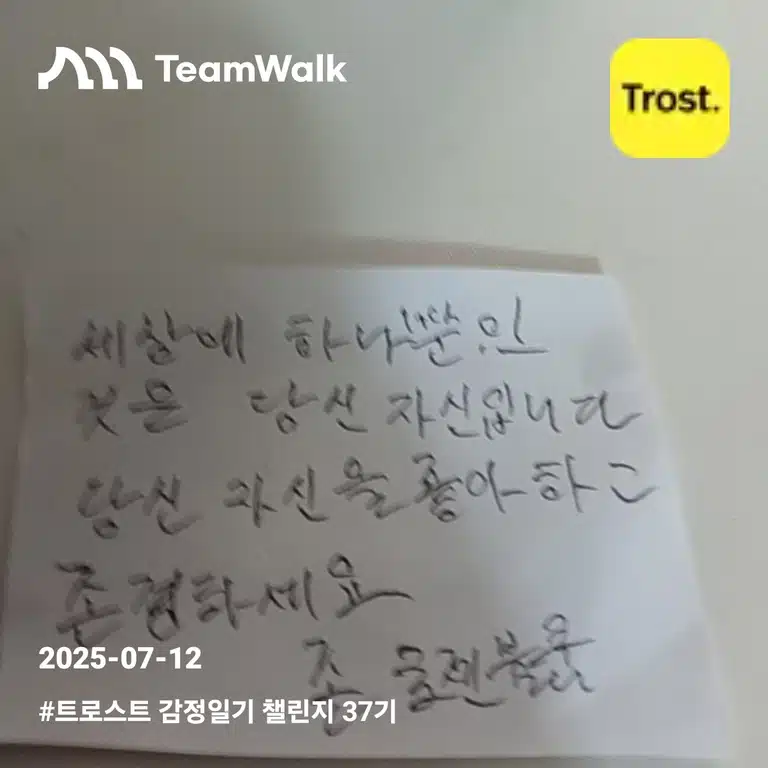 TeamWalk
Trost.
세상에 하나뿐인
것은 당신 자신입니다
당신 자신을 좋아하고
존경하세요
존
2025-07-12
#트로스트 감정일기 챌린지 37기